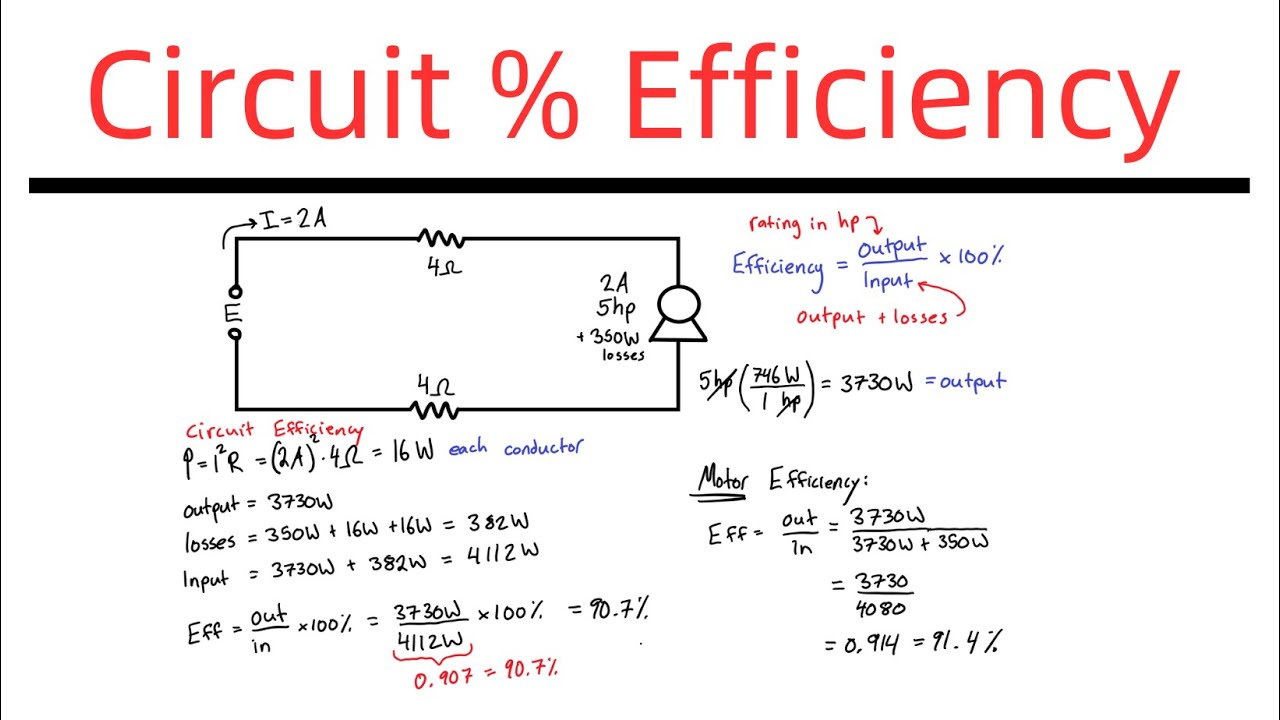 Circuit % Efficiency
I = 2A
4Ω
E
2A
5hp
+ 350W
losses
4Ω
rating in hp
Efficiency = output / Input × 100%
output + losses
5hp (746W / 1 hp) = 3730W = output
Circuit Efficiency
P = I²R = (2A)² · 4Ω = 16W each conductor
output = 3730W
losses = 350W + 16W + 16W = 382W
Input = 3730W + 382W = 4112W
Eff = out / in × 100% = 3730W / 4112W × 100% = 90.7%
0.907 = 90.7%
Motor Efficiency:
Eff = out / in = 3730W / 3730W + 350W
= 3730 / 4080
= 0.914 = 91.4%